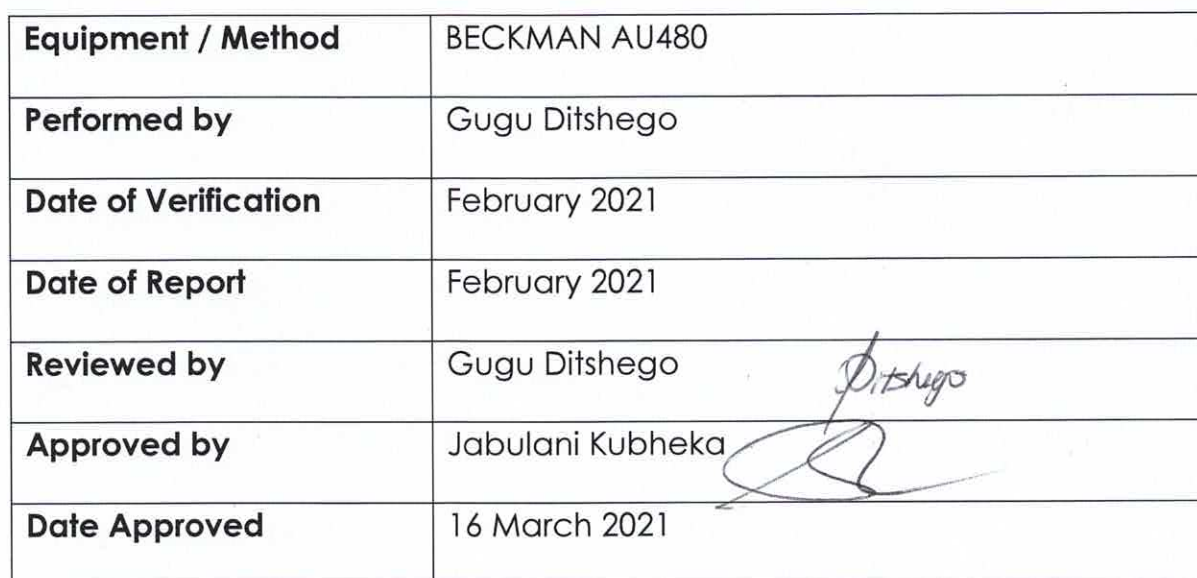 Equipment / Method BECKMAN AU480
Performed by Gugu Ditshego
Date of Verification February 2021
Date of Report February 2021
Reviewed by Gugu Ditshego Ditshego
Approved by Jabulani Kubheka
Date Approved 16 March 2021